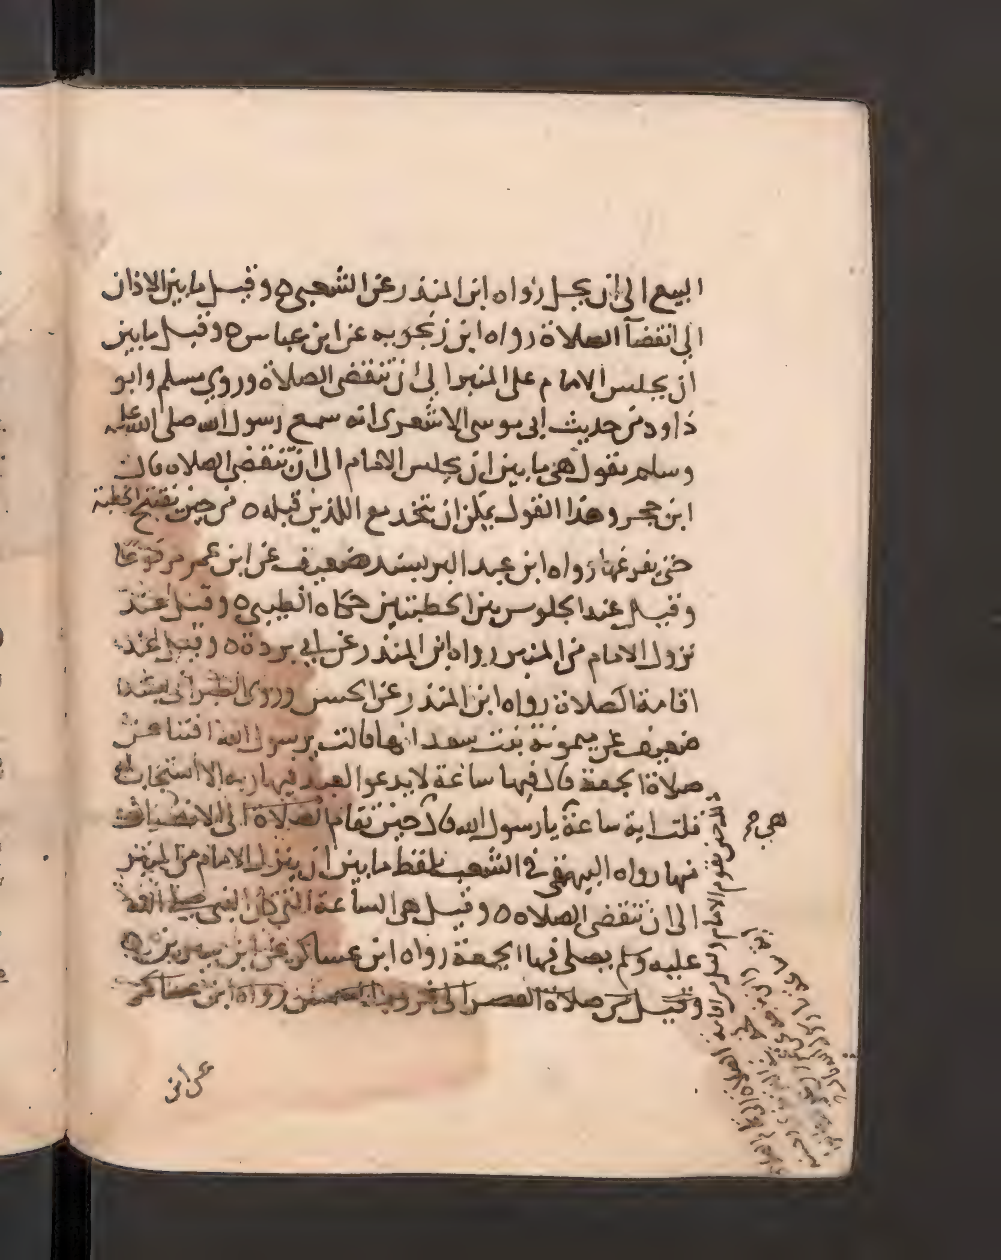 البيع الى ان يحل رواه ابن المنذر عن الشعبي ه وقيل ما بين الاذان
الى انقضآ الصلاة رواه ابن زنجويه عن ابن عباس ه وقيل ما بين
ان يجلس الامام على المنبر الى ان تنقضي الصلاة وروي مسلم وابو
داود من حديث ابي موسى الاشعرى انه سمع رسول الله صلى الله عليه
وسلم يقول هي ما بين ان يجلس الامام الى ان تنقضي الصلاه قال
ابن حجر وهذا القول يمكن ان يتحد مع اللذين قبله ه من حين يفتتح الخطبة
حتى يفرغها رواه ابن عبد البر بسند ضعيف عن ابن عمر مرفوعا
وقيل عند الجلوس بين الخطبتين حكاه الطيبي ه وقيل عند
نزول الامام من المنبر رواه ابن المنذر عن ابي بردة ه وقيل عند
اقامة الصلاة رواه ابن المنذر عن الحسن وروى الطبراني بسند
ضعيف عن ميمونة بنت سعد انها قالت يرسول الله افتنا عن
صلاة الجمعة قال فيها ساعة لا يدعوا العبد فيها ربه الا استجاب له
قلت اية ساعة يا رسول الله قال حين تقام الصلاة الى الانصراف
منها رواه البيهقي في الشعب بلفظ ما بين ان ينزل الامام من المنبر
الى ان تنقضي الصلاه ه وقيل هي الساعة التي كان النبي صلى الله
عليه وسلم يصلي فيها الجمعة رواه ابن عساكر عن ابن سيرين ه
وقيل من صلاة العصر الى غروب الشمس رواه ابن عساكر
عن ابي
هي من
حين يقوم الامام